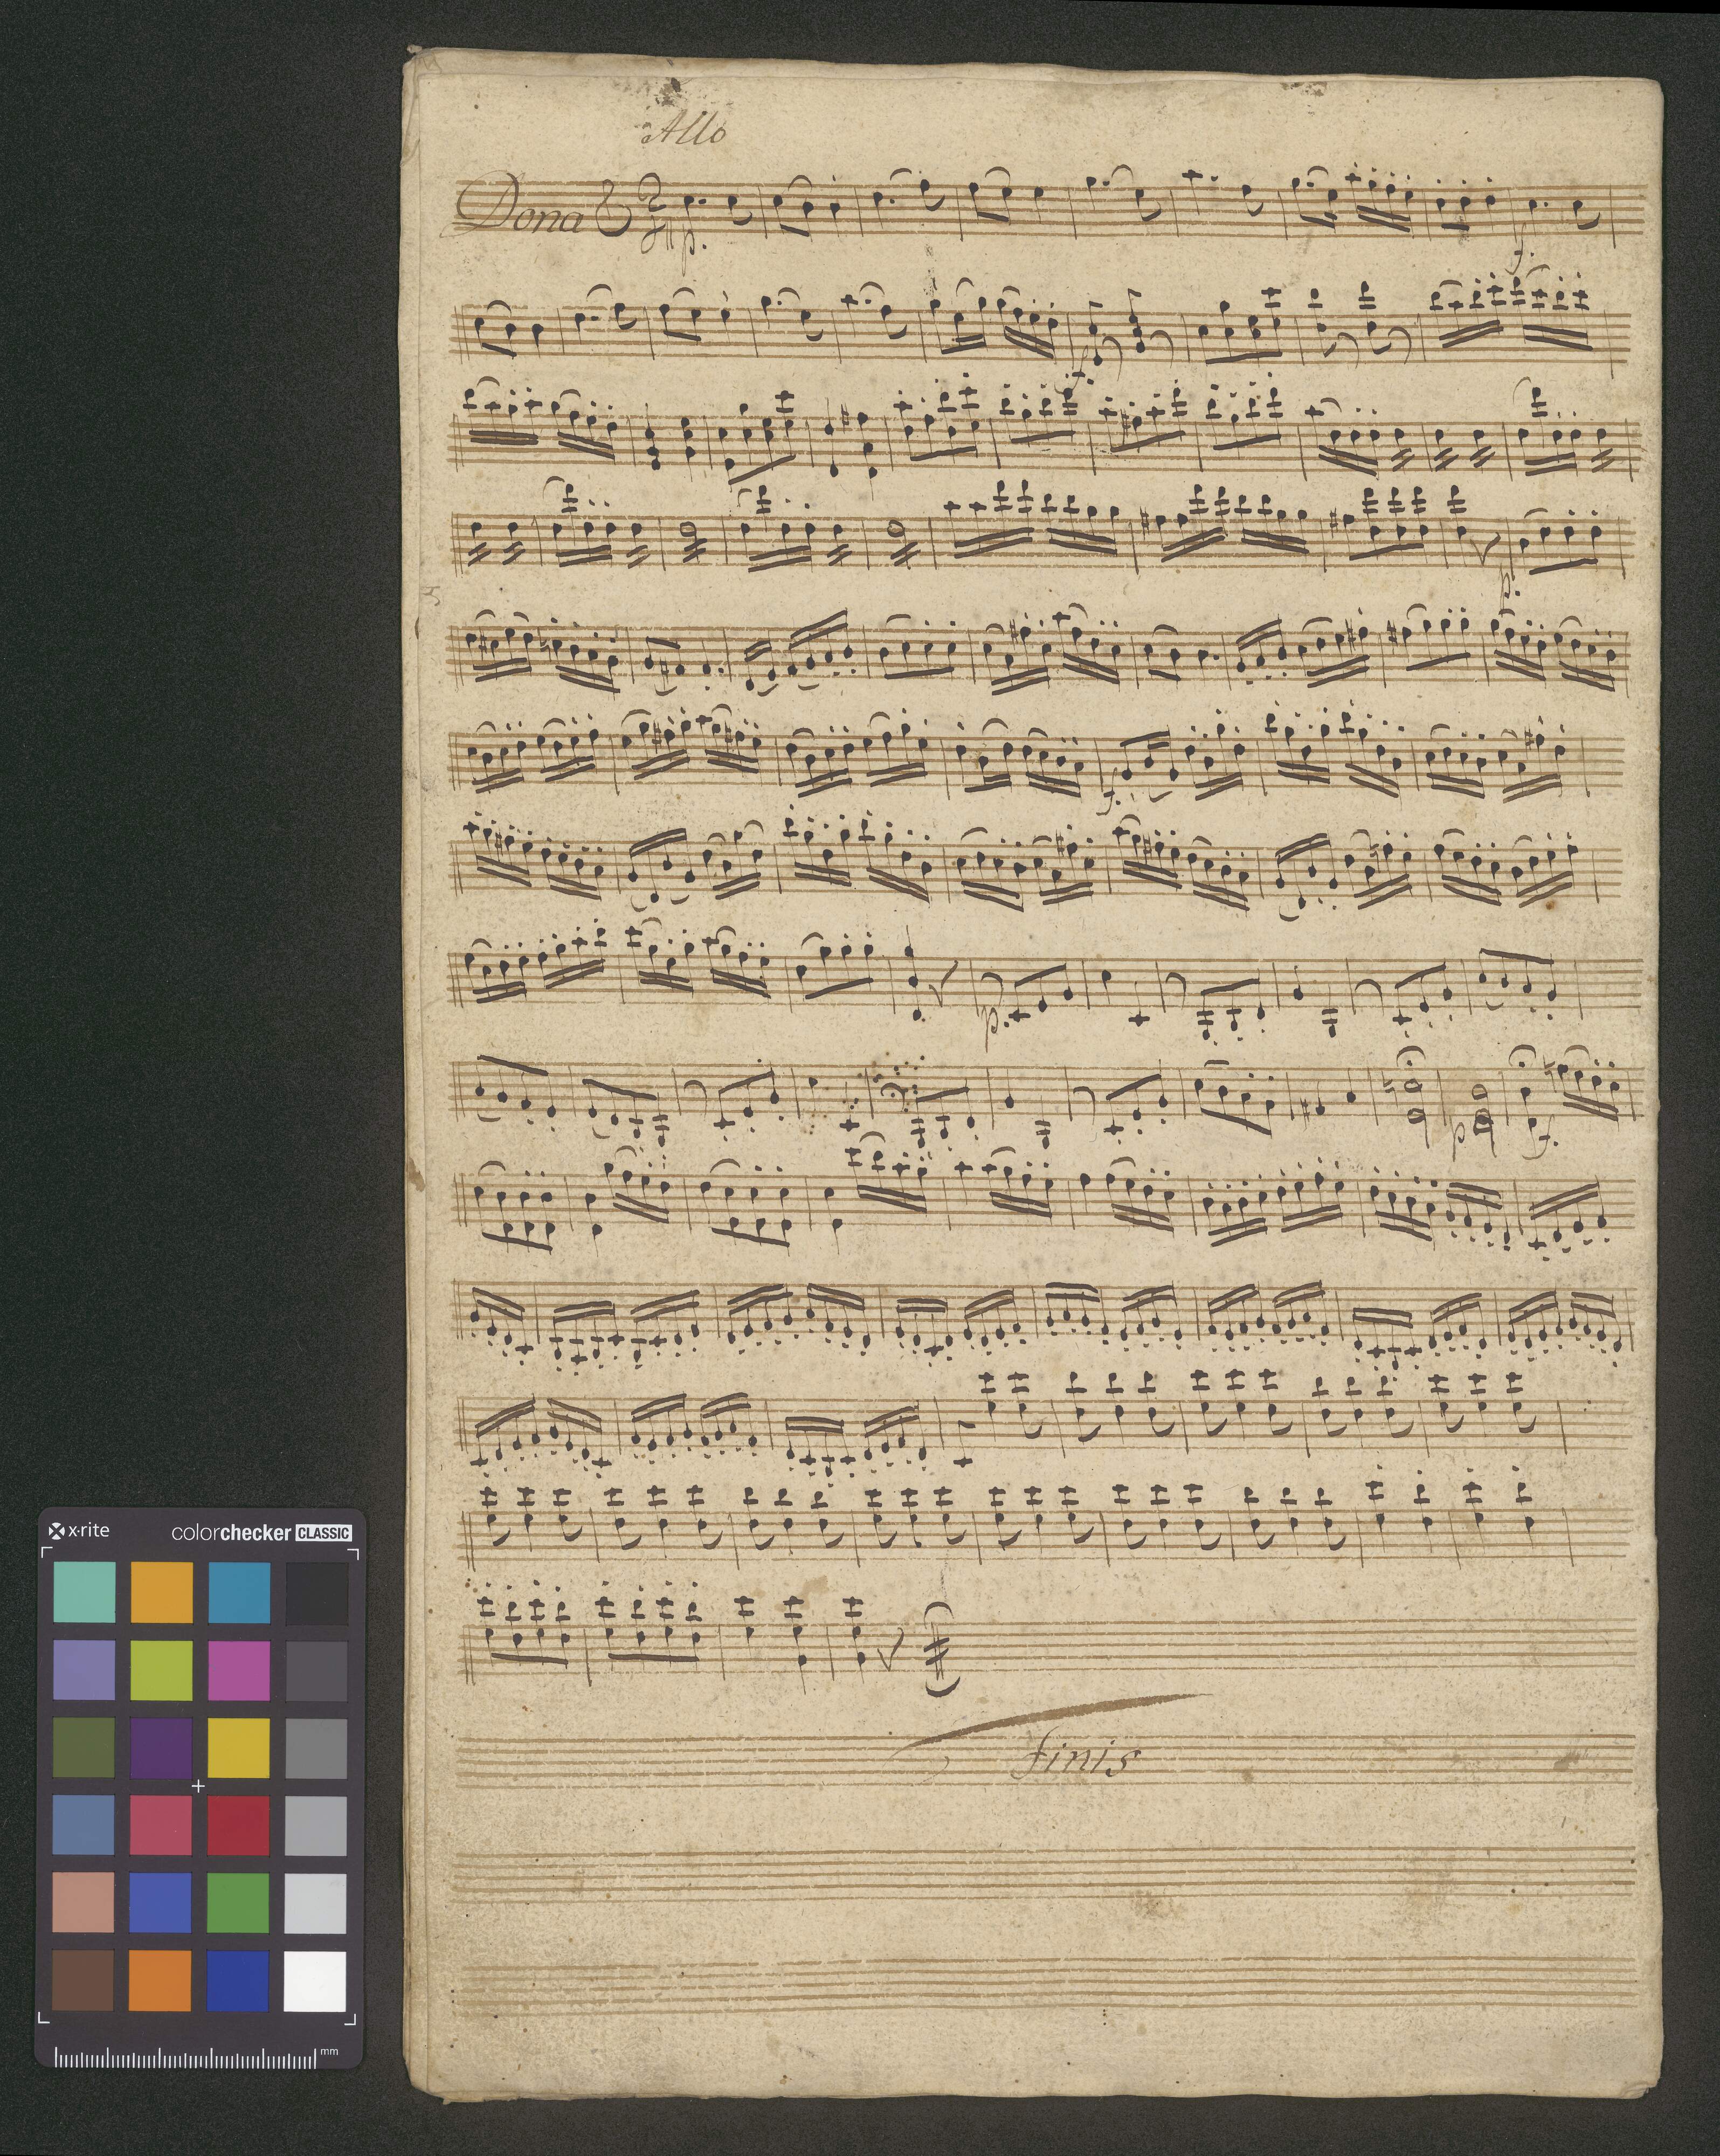 Allo
Dona
p.
f.
f.
p.
f.
p.
p
f.
finis
x·rite colorchecker CLASSIC
mm